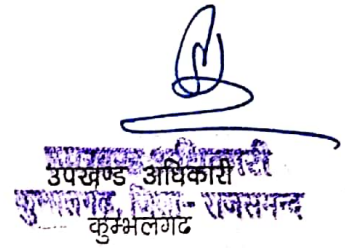 उपखण्ड अधिकारी
कुम्भलगढ, जिला- राजसमन्द
कुम्भलगढ